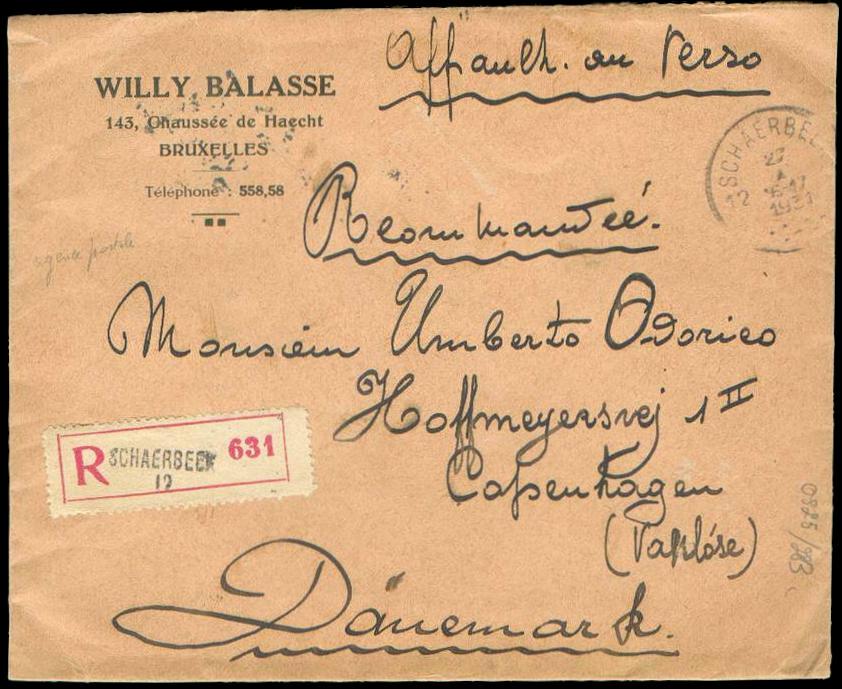 WILLY BALASSE
143, Chaussée de Haecht
BRUXELLES
Téléphone : 558,58
Affranch. au Verso
SCHAERBEE
12
27
1931
Recommandée.
agence postale
Monsieur Umberto Odorico
Hoffmeyersvej 1 II
Copenhagen
(Vanlöse)
Dänemark.
R SCHAERBEEK 631
12
0825/283